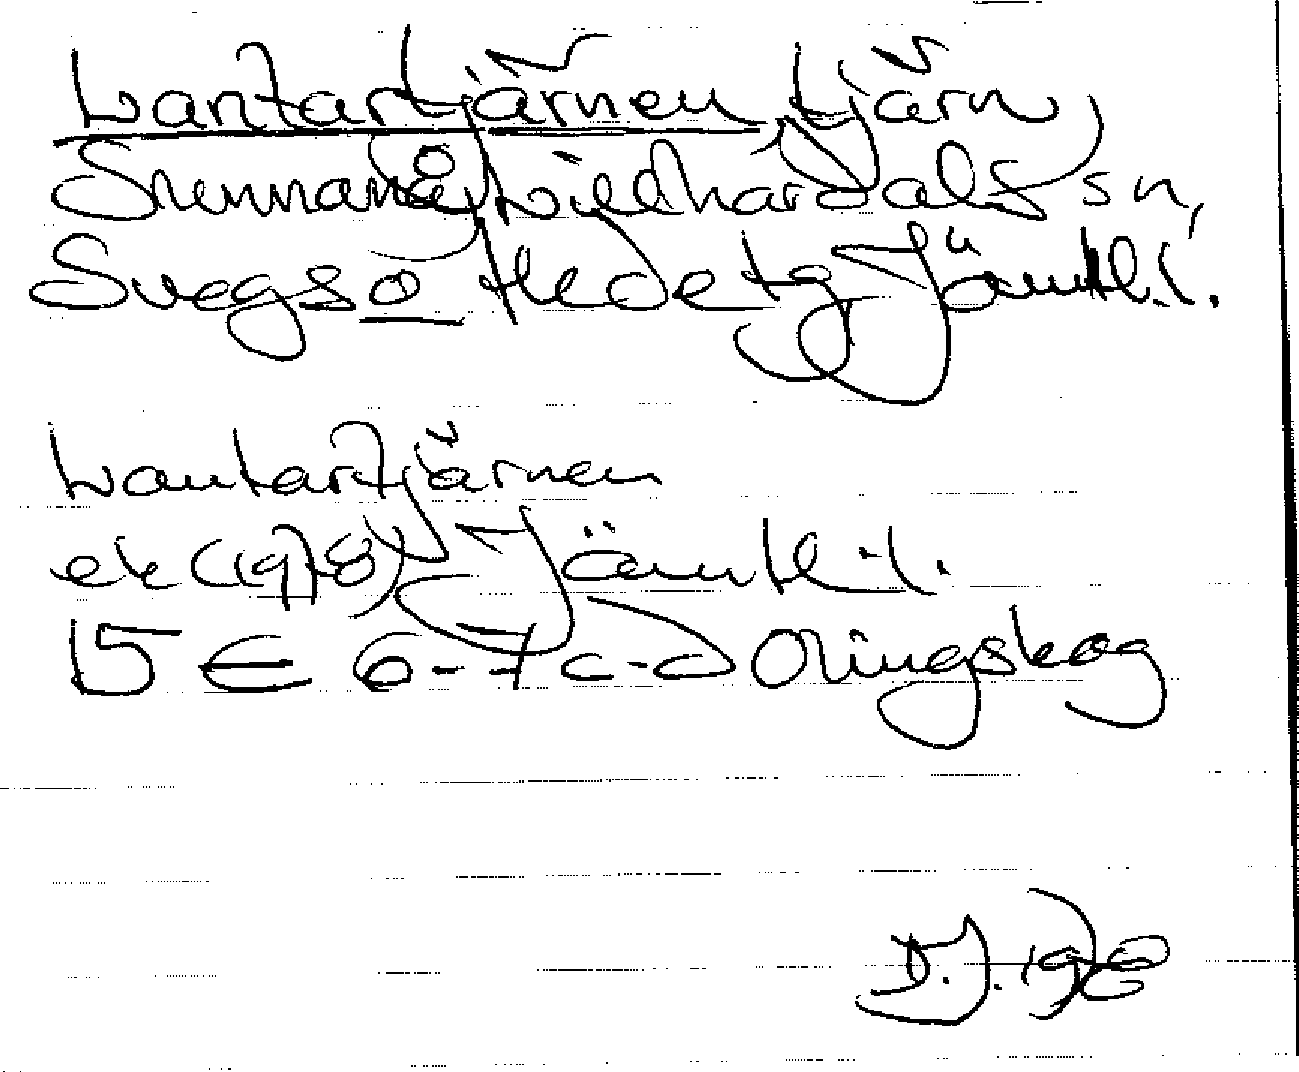 Lantartjärnen, tjärn,
Sunnanå, Lillhärdals sn,
Svegs o Hedets Jämtl.l.
Lantartjärnen
ek (1978) Jämtl.l.
15 E 6-7 c-d Olingskog
D.J. 1978